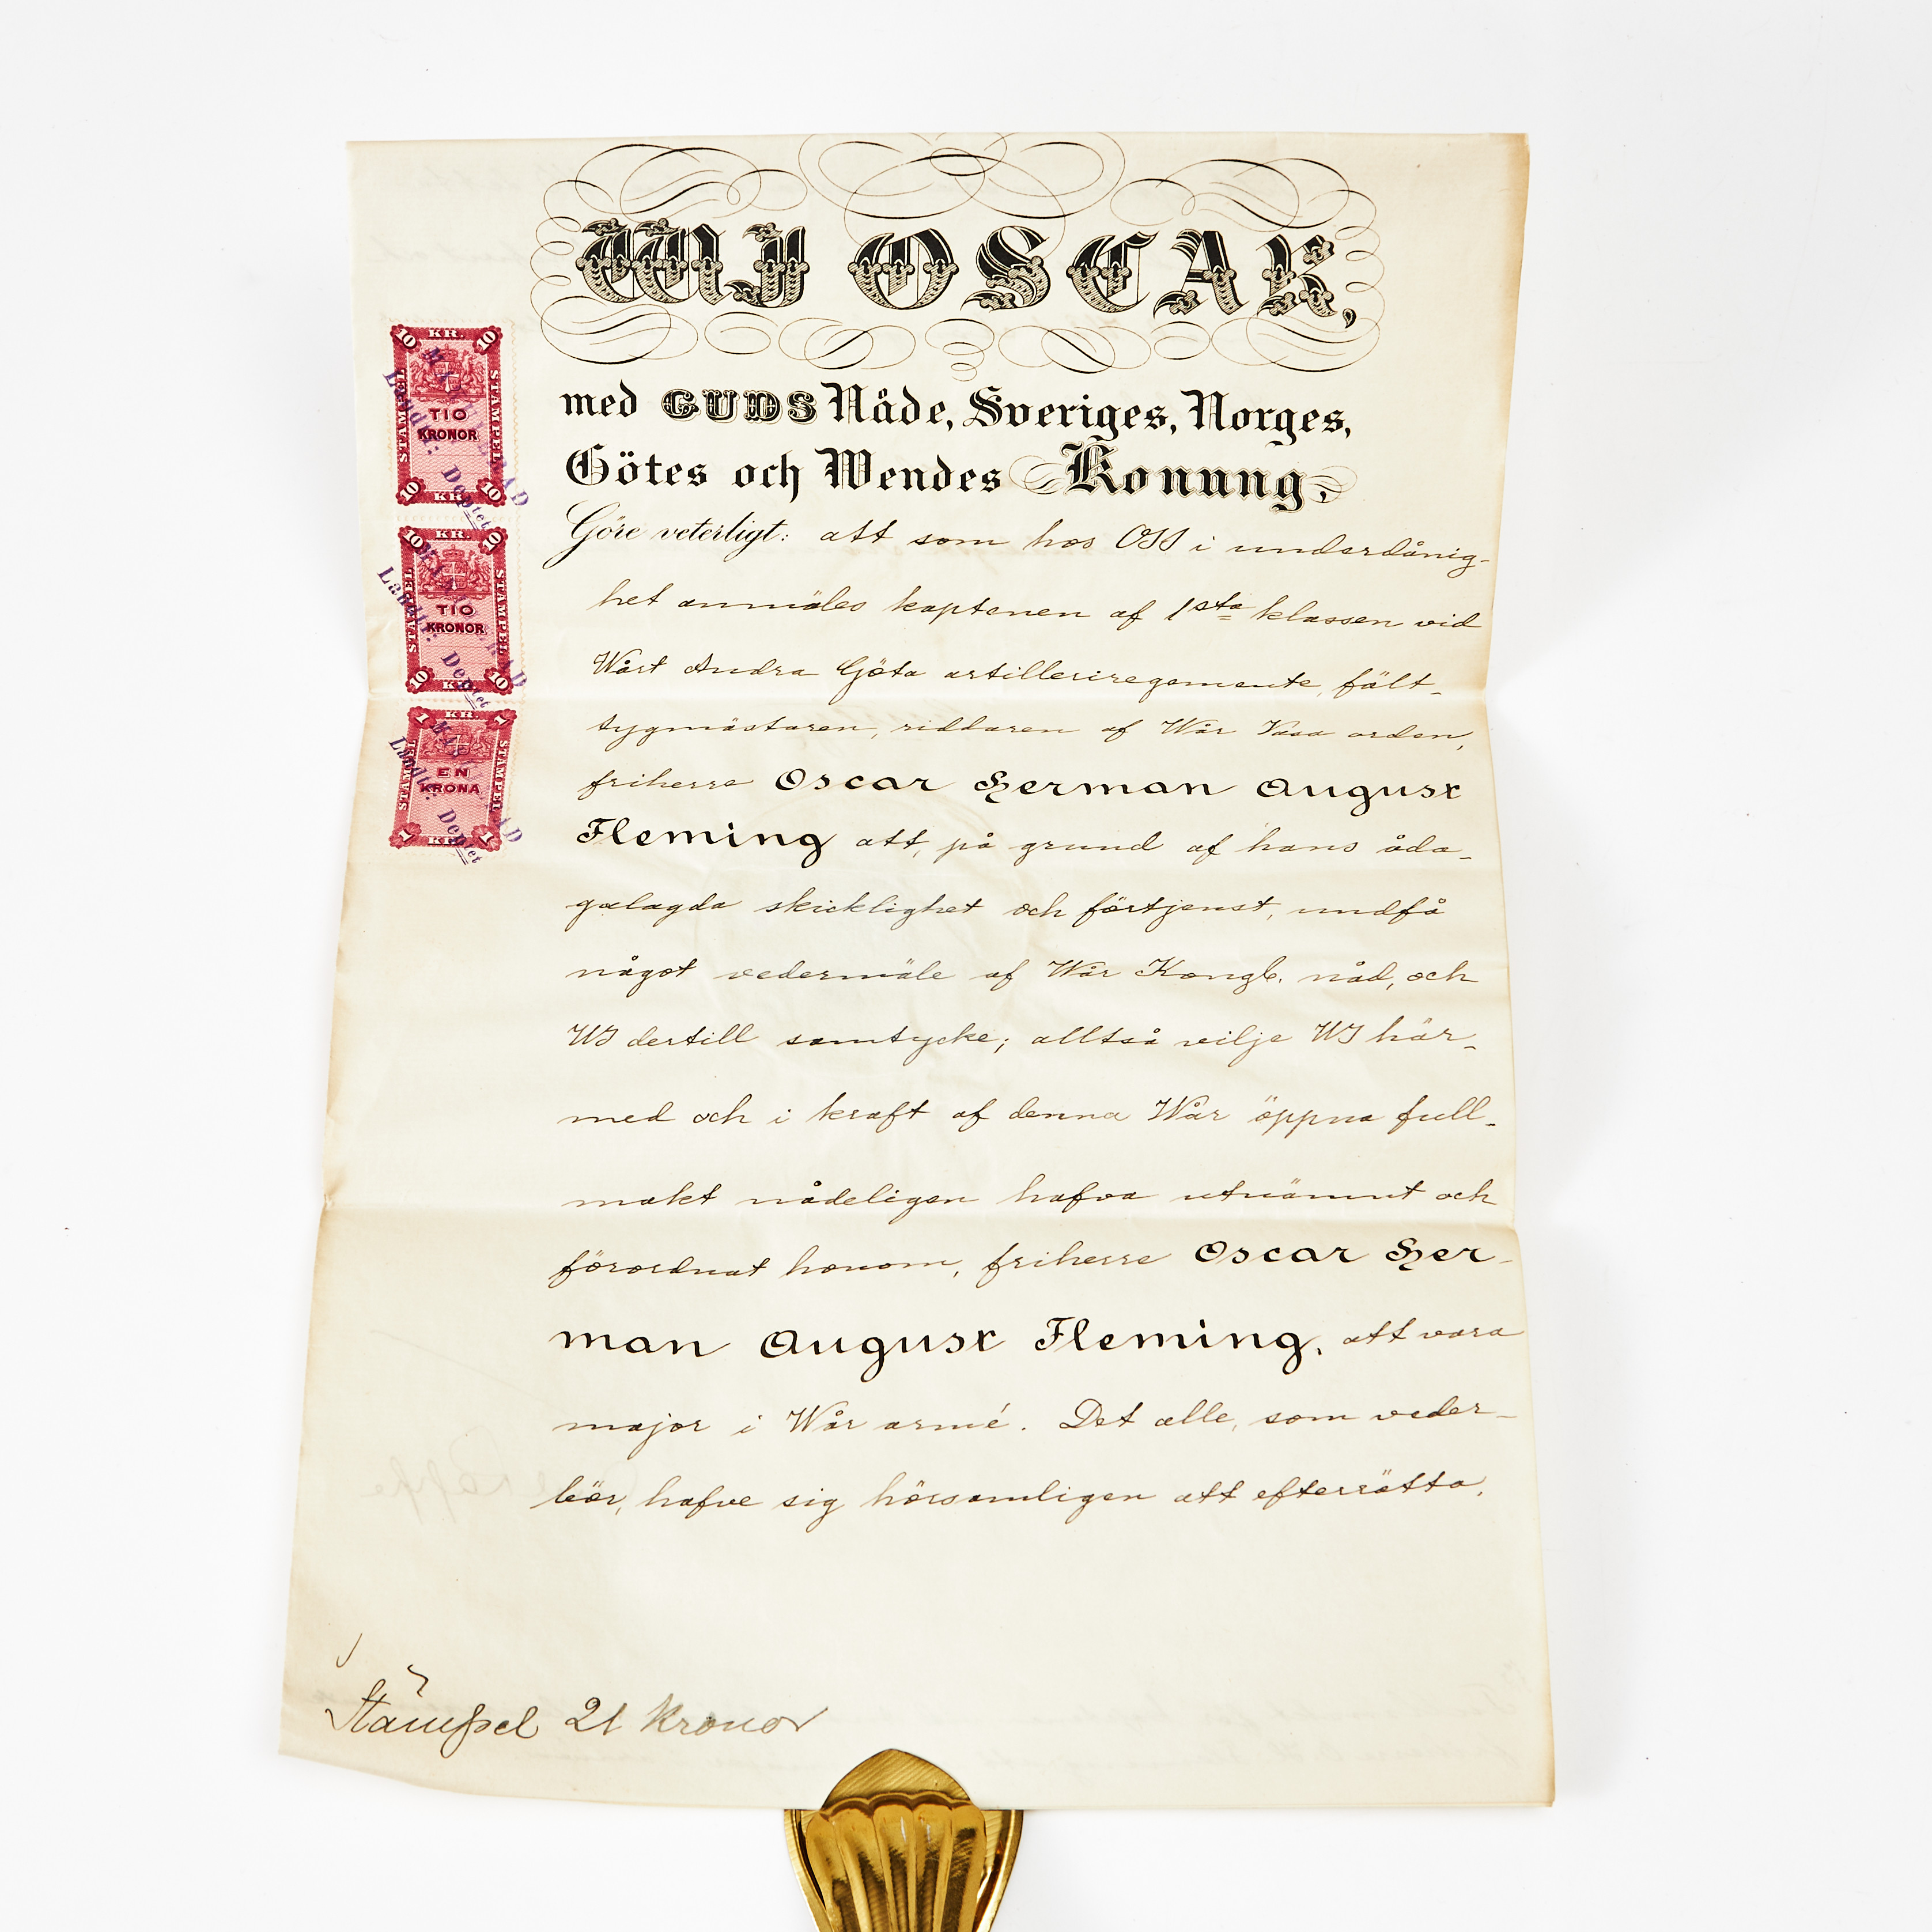 WJ OSCAR,
med GUDS Nåde, Sveriges, Norges,
Götes och Wendes Konung,
Göre veterligt: att som hos OSS i underdånig-
het anmäles kaptenen af 1sta klassen vid
Wårt Andra Göta artilleriregemente, fält-
tygmästaren, riddaren af Wår Vasa orden,
friherre Oscar Herman August
Fleming att, på grund af hans åda-
galagda skicklighet och förtjenst, undfå
något vedermäle af Wår Kongl. nåd, och
WJ dertill samtycke; alltså vilje WJ här-
med och i kraft af denna Wår öppna full-
makt nådeligen hafva utnämnt och
förordnat honom, friherre Oscar Her-
man August Fleming, att vara
major i Wår armé. Det alle, som veder-
bör, hafve sig hörsamligen att efterrätta.
Stämpel 21 Kronor
10 KR. 10
STÄMPEL
STÄMPEL
TIO
KRONOR
10 KR. 10
MARKERAD
Landtf: Dep:tet
10 KR. 10
STÄMPEL
STÄMPEL
TIO
KRONOR
10 KR. 10
Landtf: Dep:tet
1 KR. 1
STÄMPEL
STÄMPEL
EN
KRONA
1 KR. 1
Landtf: Dep:tet